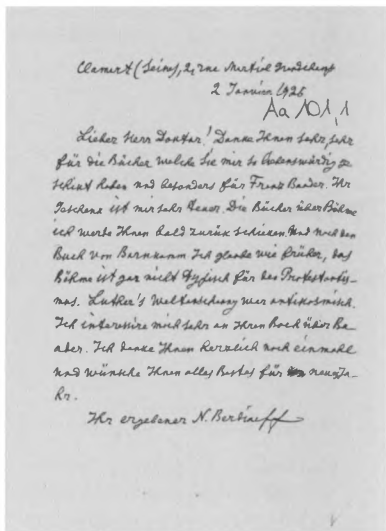 Clamart (Seine), 2, rue Martial Grandchamp
2 Janvier 1926
Aa 101,1
Lieber Herr Doktor! Danke Ihnen sehr, sehr
für die Bücher welche Sie mir so liebenswürdig ge
schickt haben und besonders für Franz Baader. Ihr
Geschenk ist mir sehr teuer. Die Bücher über Böhme
ich werde Ihnen bald zurück schicken. Und noch den
Buch von Bornkamm. Ich glaube wie früher, das
Böhme ist gar nicht typisch für den Protestantis-
mus. Luther's Weltanschauung war antikosmisch.
Ich interessire mich sehr an Ihren Buch über Ba-
ader. Ich danke Ihnen herzlich noch einmahl
und wünsche Ihnen alles Bestes für neues Ja-
hr.
Ihr ergebener N. Berdiaeff